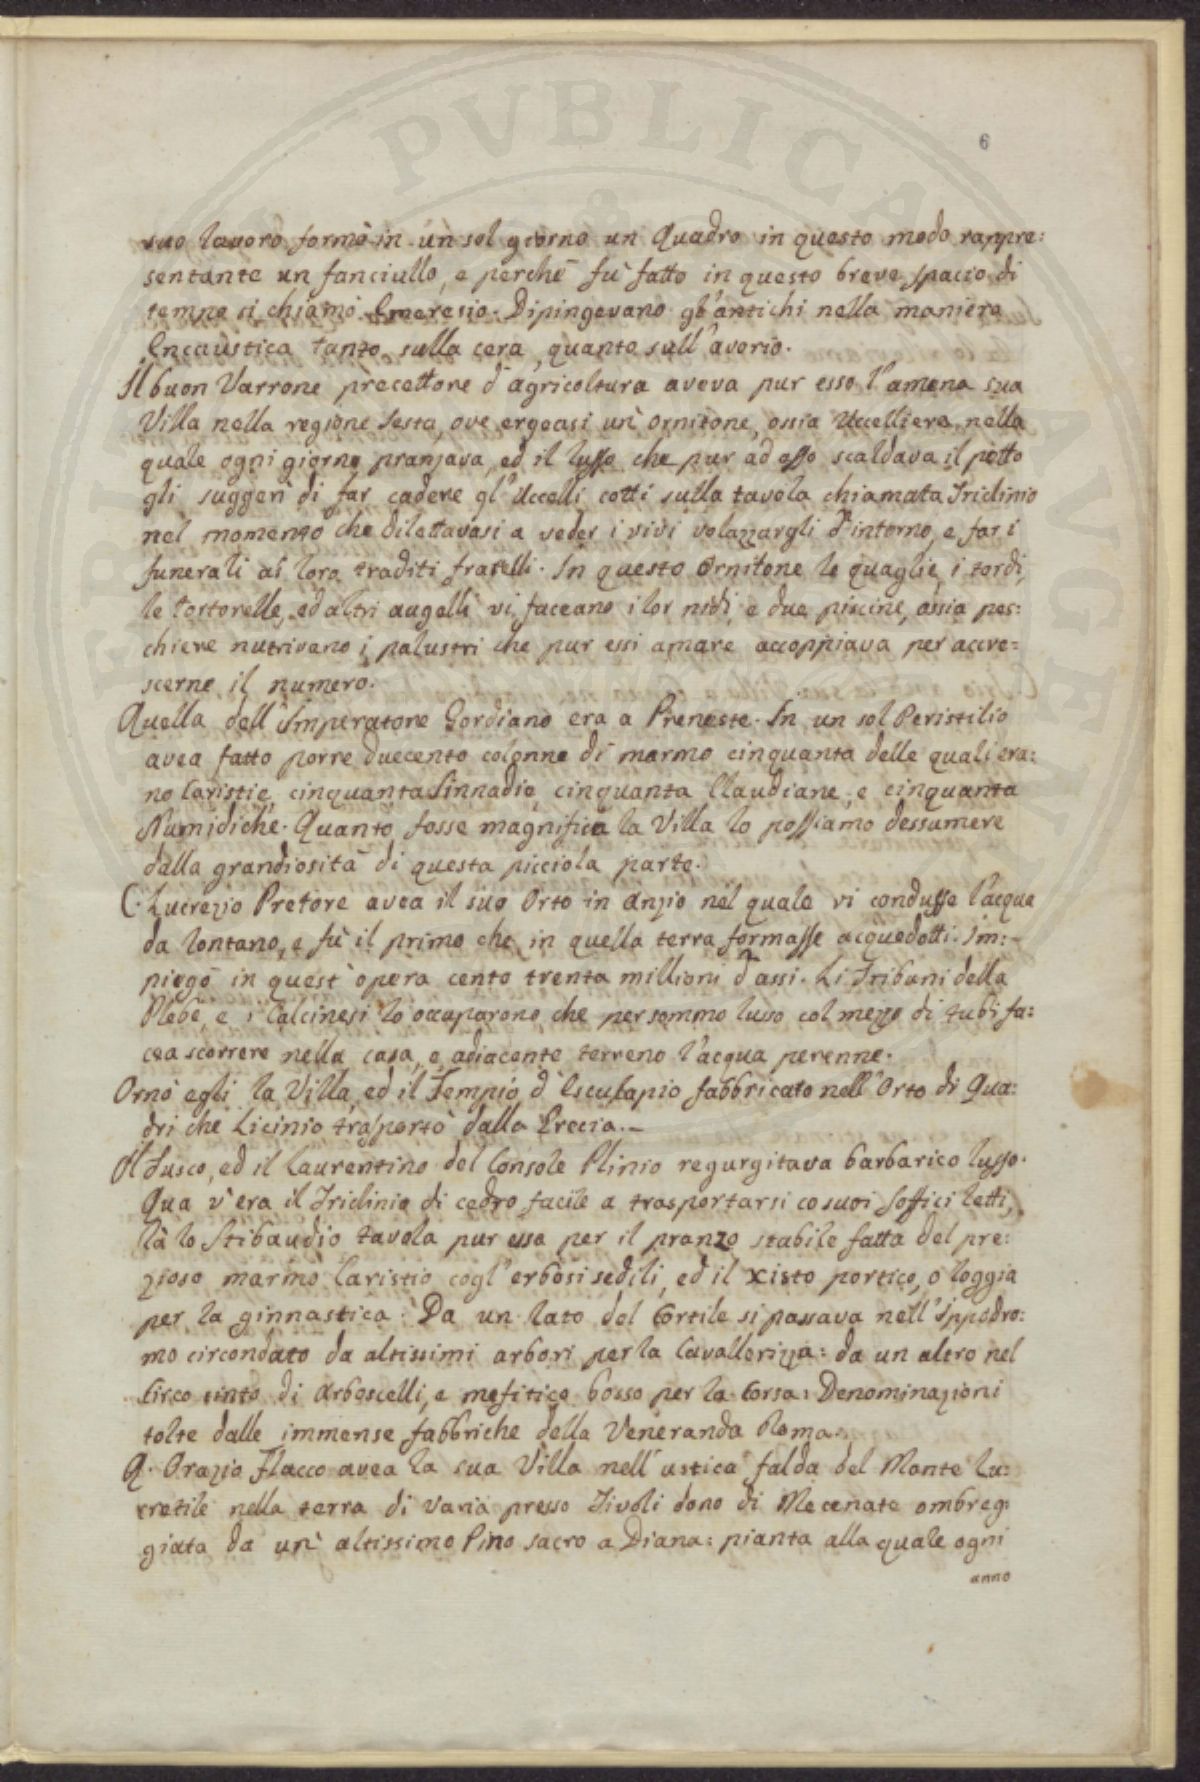 PVBLICA
6
suo lavoro formò in un sol giorno un Quadro in questo modo rappre:
sentante un fanciullo, e perchè fù fatto in questo breve spacio di
tempo si chiamò Emeresio. Dipingevano gl'antichi nella maniera
Encaustica tanto sulla cera, quanto sull'avorio.
Il buon Varrone precettore d'agricoltura aveva pur esso l'amena sua
Villa nella regione sesta, ove ergeasi un' ornitone, ossia Uccelliera, nella
quale ogni giorno pranzava, ed il lusso che pur ad esso scaldava il petto
gli suggerì di far cadere gl'Uccelli cotti sulla tavola chiamata Triclinio
nel momento che dilettavasi a veder i vivi volazzargli d'intorno, e far i
funerali ai loro traditi fratelli. In questo Ornitone le quaglie, i tordi,
le tortorelle, ed altri augelli vi faceano i lor nidi, e due piscine, ossia pes:
chiere nutrivano i palustri che pur essi amare accoppiava per accre=
scerne il numero.
Quella dell'Imperatore Gordiano era a Preneste. In un sol Peristilio
avea fatto porre duecento colonne di marmo cinquanta delle quali era:
no Caristie, cinquanta Sinnadie, cinquanta Claudiane, e cinquanta
Numidiche. Quanto fosse magnifica la Villa lo possiamo dessumere
dalla grandiosità di questa picciola parte.
C. Lucrezio Pretore avea il suo Orto in Anzio nel quale vi condusse l'acqua
da lontano, e fù il primo che in quella terra formasse acquedotti. Im:
piegò in quest'opera cento trenta millioni d'assi. Li Tribuni della
Plebe, e i Calcinesi lo occuparono, che per sommo lusso col mezzo di tubi fa:
cea scorrere nella casa, e adiacente terreno l'acqua perenne.
Ornò egli la Villa, ed il Tempio d'Esculapio fabbricato nell'Orto di Qua:
dri che Licinio trasportò dalla Grecia.
Il Tusco, ed il Laurentino del Console Plinio regurgitava barbarico lusso.
Qua v'era il Triclinio di cedro facile a trasportarsi co suoi soffici letti,
là lo Stibaudio tavola pur essa per il pranzo stabile fatta del pre:
zioso marmo Caristio cogl'erbosi sedili, ed il xisto portico, o loggia
per la ginnastica. Da un lato del Cortile si passava nell'Ippodro:
mo circondato da altissimi arbori per la Cavallerizza: da un altro nel
Circo cinto di arboscelli, e mefitico bosso per la Corsa: Denominazioni
tolte dalle immense fabbriche della Veneranda Roma.
Q. Orazio Flacco avea la sua Villa nell'ustica falda del Monte Lu:
cretile nella terra di Varia presso Tivoli dono di Mecenate ombreg:
giata da un' altissimo Pino sacro a Diana: pianta alla quale ogni
anno